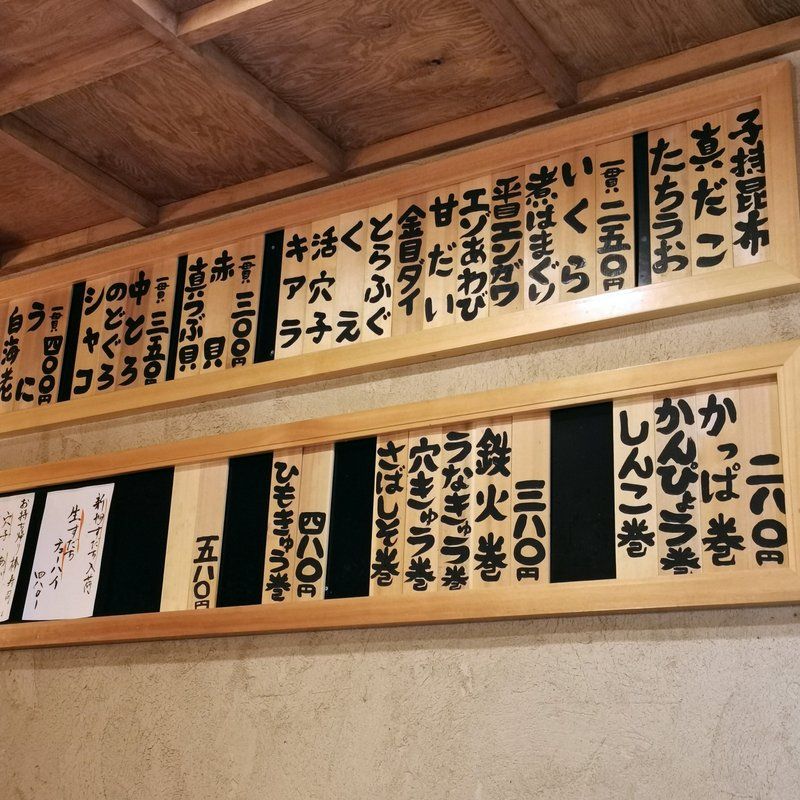 子持昆布
真だこ
たちうお
一貫 二五〇円
いくら
煮はまぐり
平目エンガワ
エゾあわび
甘だい
金目タイ
とらふぐ
くえ
活穴子
キアラ
一貫 三〇〇円
赤貝
真つぶ貝
一貫 三五〇円
中とろ
のどぐろ
シャコ
一貫 四〇〇円
うに
白海老
二八〇円
かっぱ巻
かんぴょう巻
しんこ巻
三八〇円
鉄火巻
うなきゅう巻
穴きゅう巻
さばしそ巻
四八〇円
ひもきゅう巻
五八〇円
新物すだち入荷
生すだち
酎ハイ
四八〇-
お持ち帰り
穴子